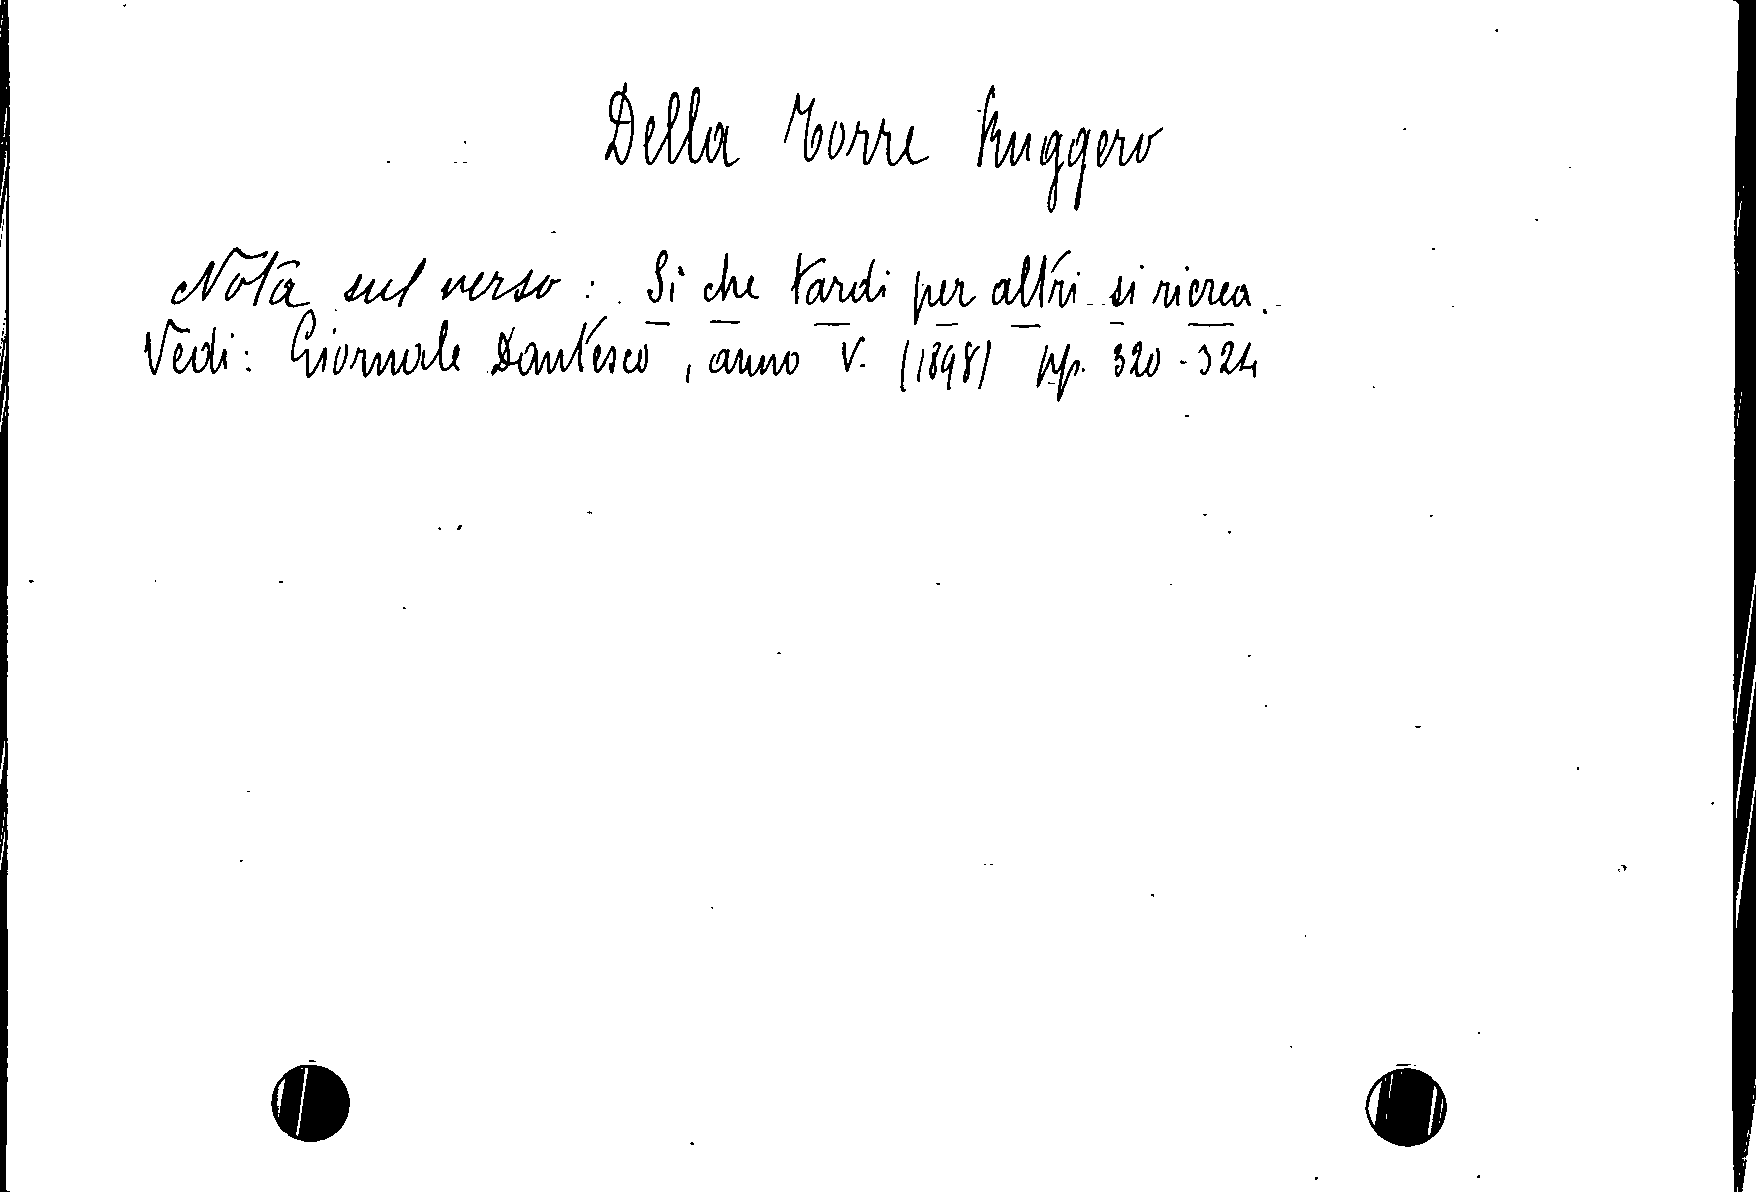 Della Torre Ruggero
Nota sul verso: Si che tardi per altri si ricrea.
Vedi: Giornale Dantesco, anno V. (1898) pp. 320-324